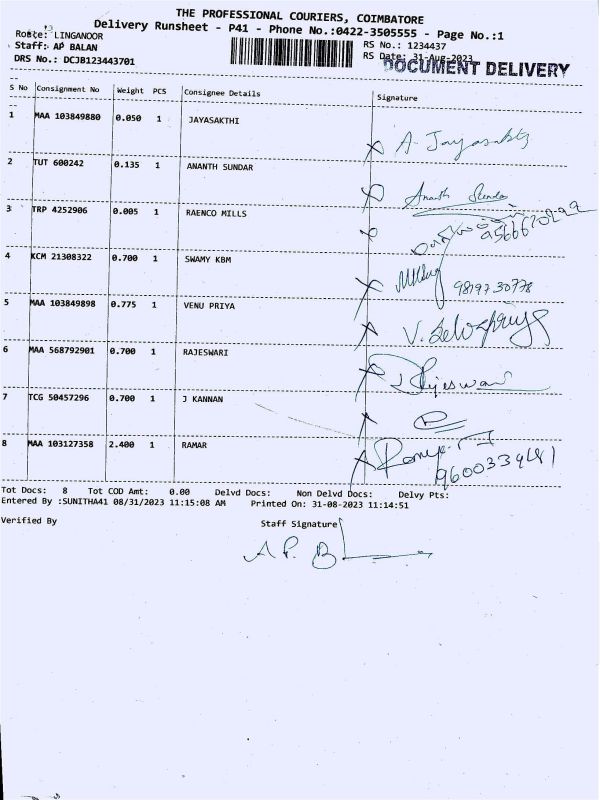 THE PROFESSIONAL COURIERS, COIMBATORE
Delivery Runsheet - P41 - Phone No.:0422-3505555 - Page No.:1
Route: LINGANOOR
RS No.: 1234437
Staff: AP BALAN
RS Date: 31-Aug-2023
DRS No.: DCJB123443701
DOCUMENT DELIVERY
S No Consignment No Weight PCS Consignee Details Signature
1 MAA 103849880 0.050 1 JAYASAKTHI
A. Jayasakthi
2 TUT 600242 0.135 1 ANANTH SUNDAR
Ananth Sundar
3 TRP 4252906 0.005 1 RAENCO MILLS
4 KCM 21308322 0.700 1 SWAMY KBM
9819730778
5 MAA 103849898 0.775 1 VENU PRIYA
6 MAA 568792901 0.700 1 RAJESWARI
Rajeswari
7 TCG 50457296 0.700 1 J KANNAN
8 MAA 103127358 2.400 1 RAMAR
Tot Docs: 8 Tot COD Amt: 0.00 Delvd Docs: Non Delvd Docs: Delvy Pts:
Entered By :SUNITHA41 08/31/2023 11:15:08 AM Printed On: 31-08-2023 11:14:51
Verified By Staff Signature
A P. B